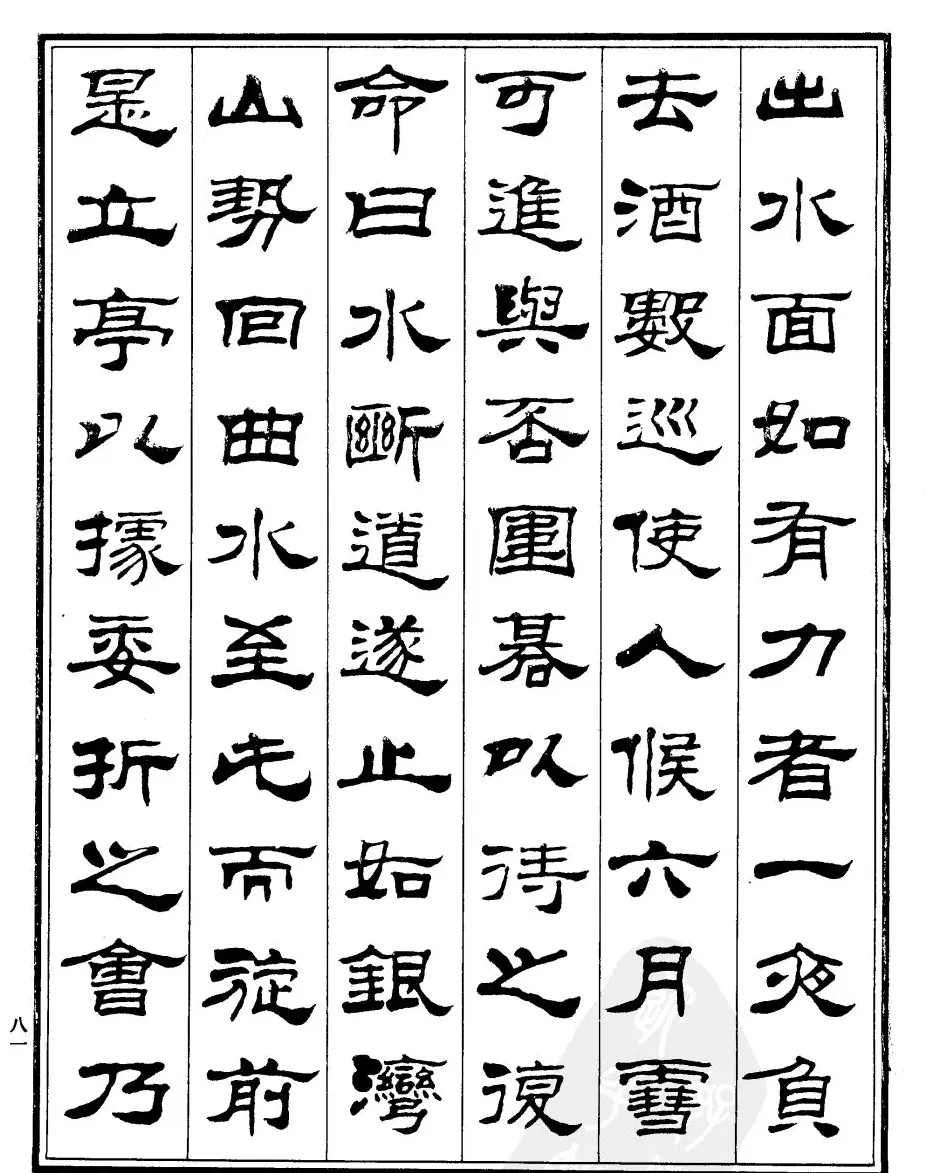 出水面如有力者一夜負
去酒數巡使人候六月雪
可進與否圍碁以待之復
命曰水斷道遂止如銀灣
山勢回曲水至此而旋前
是立亭以據委折之會乃
八一